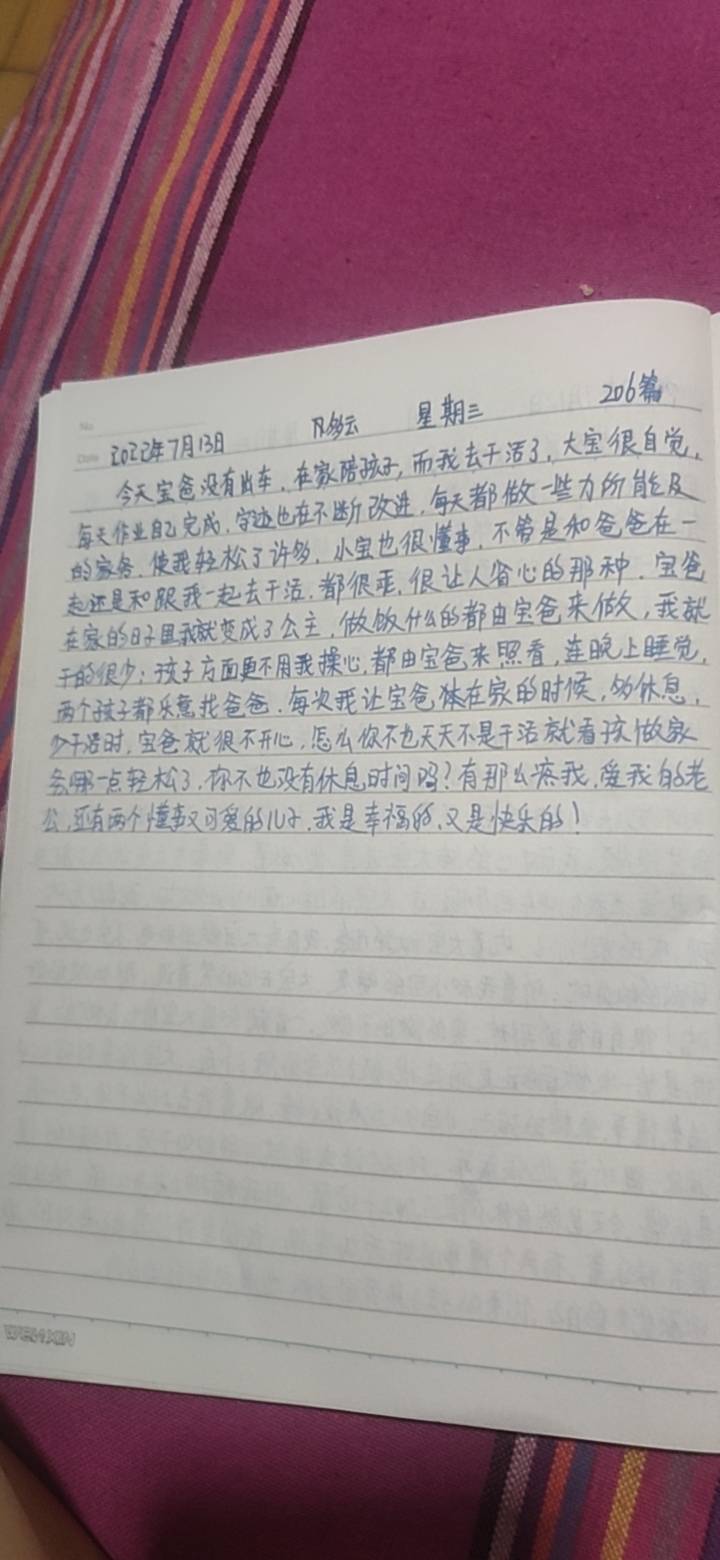 No
Date 2022年7月13日 阴多云 星期三 206篇
今天宝爸没有出车，在家陪孩子，而我去干活了，大宝很自觉，
每天作业自己完成，字迹也在不断改进，每天都做一些力所能及
的家务，使我轻松了许多，小宝也很懂事，不管是和爸爸在一
起还是和跟我一起去干活，都很乖，很让人省心的那种，宝爸
在家的日子里我就变成了公主，做饭什么的都由宝爸来做，我就
干的很少；孩子方面更不用我操心，都由宝爸来照看，连晚上睡觉，
两个孩子都乐意找爸爸，每次我让宝爸休在家的时候，多休息，
少干活时，宝爸就很不开心，怎么你不也天天不是干活就看孩做家
务哪一点轻松了，你不也没有休息时间吗？有那么疼我，爱我的老
公，还有两个懂事又可爱的儿子，我是幸福的，又是快乐的！